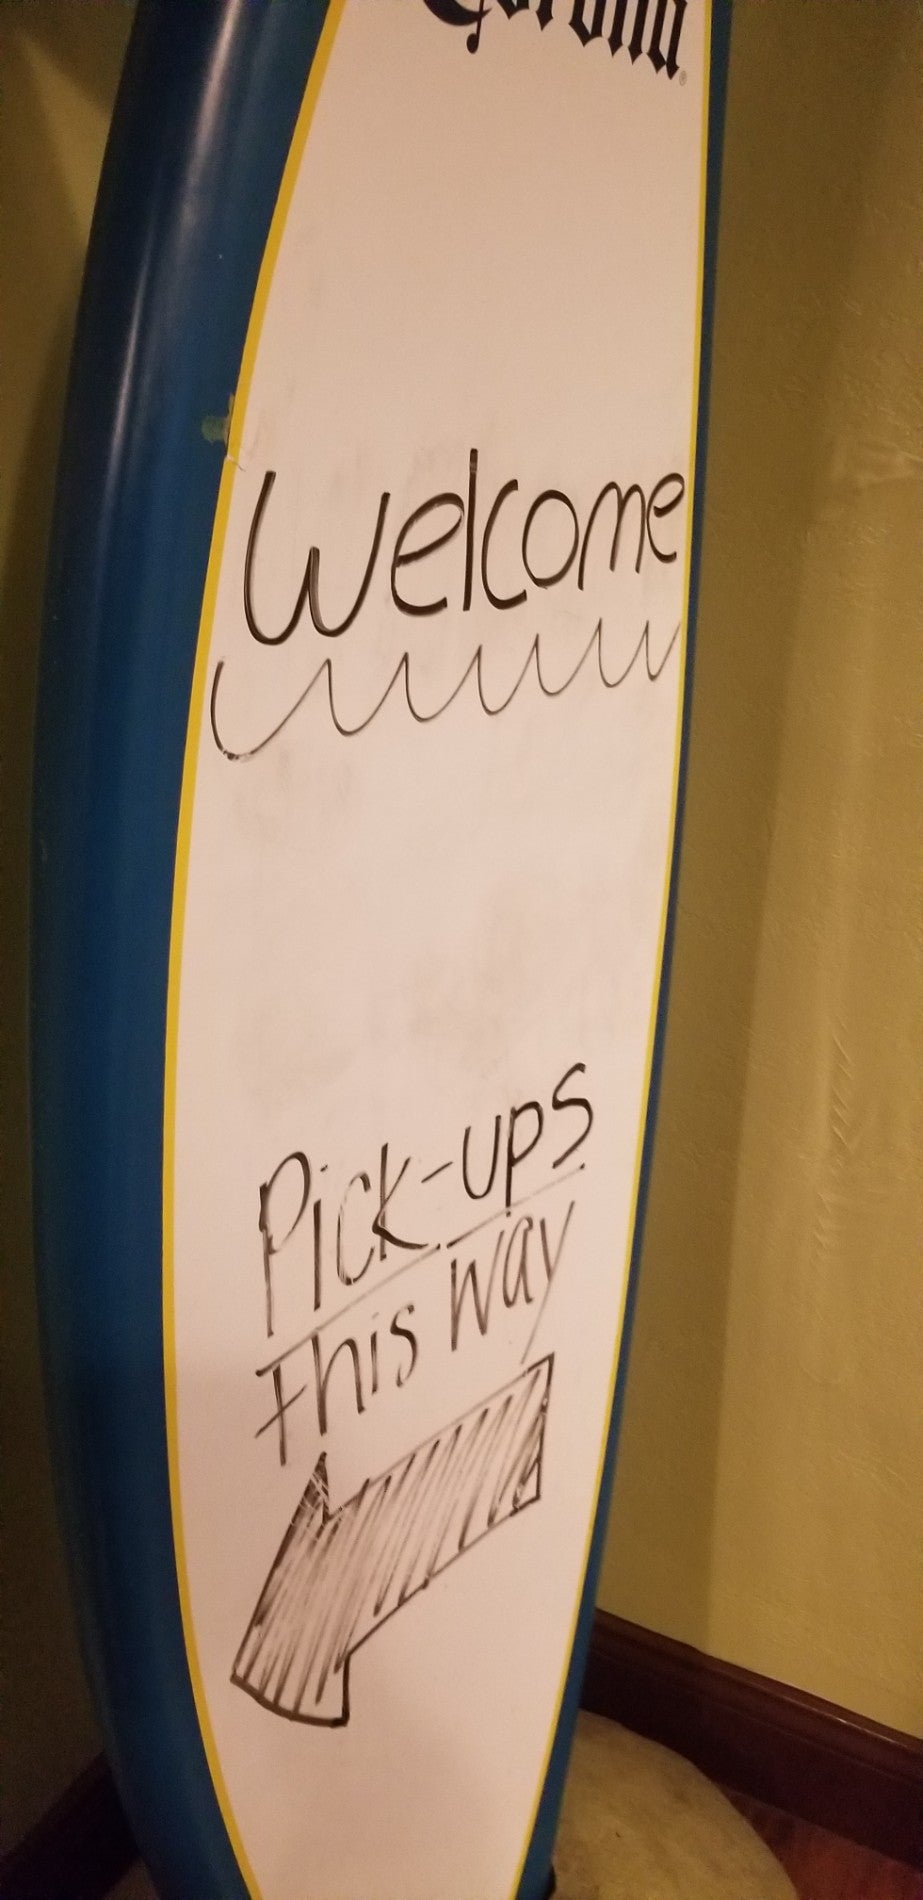 Corona
Welcome
Pick-ups
this way